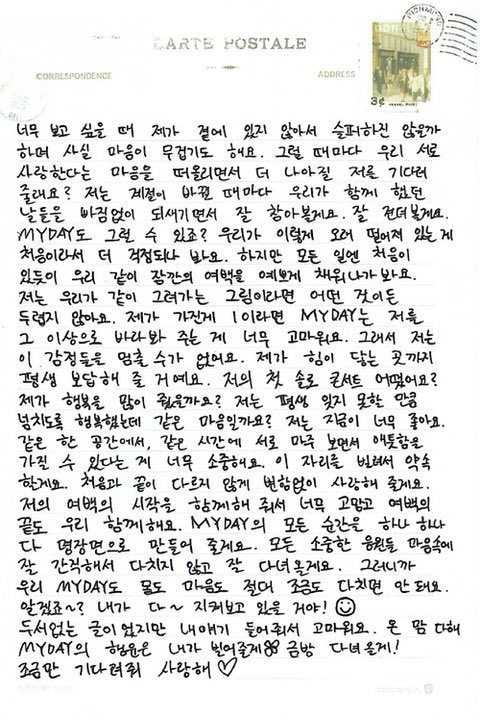 CARTE POSTALE
CORRESPONDENCE
ADDRESS
RICHMOND
3¢
너무 보고 싶을 때 제가 곁에 있지 않아서 슬퍼하진 않을까
하며 사실 마음이 무겁기도 해요. 그럴 때마다 우리 서로
사랑한다는 마음을 떠올리면서 더 나아질 저를 기다려
줄래요? 저는 계절이 바뀔 때마다 우리가 함께 했던
날들을 빠짐없이 되새기면서 잘 참아볼게요. 잘 견뎌볼게요.
MYDAY도 그럴 수 있죠? 우리가 이렇게 오래 떨어져 있는 게
처음이라서 더 걱정되나 봐요. 하지만 모든 일엔 처음이
있듯이 우리 같이 잠깐의 여백을 예쁘게 채워나가봐요.
저는 우리가 같이 그려가는 그림이라면 어떤 것이든
두렵지 않아요. 제가 가진게 1이라면 MYDAY는 저를
그 이상으로 바라봐 주는 게 너무 고마워요. 그래서 저는
이 감정들을 멈출 수가 없어요. 제가 힘이 닿는 곳까지
평생 보답해 줄 거예요. 저의 첫 솔로 콘서트 어땠어요?
제가 행복을 많이 줬을까요? 저는 평생 잊지 못할 만큼
넘치도록 행복했는데 같은 마음일까요? 저는 지금이 너무 좋아요.
같은 한 공간에서, 같은 시간에 서로 마주 보면서 애틋함을
가질 수 있다는 게 너무 소중해요. 이 자리를 빌려서 약속
할게요. 처음과 끝이 다르지 않게 변함없이 사랑해 줄게요.
저의 여백의 시작을 함께해 줘서 너무 고맙고 여백의
끝도 우리 함께해요. MYDAY의 모든 순간을 하나 하나
다 명장면으로 만들어 줄게요. 모든 소중한 응원들 마음속에
잘 간직해서 다치지 않고 잘 다녀올게요. 그러니까
우리 MYDAY도 몸도 마음도 절대 조금도 다치면 안 돼요.
알겠죠~? 내가 다~ 지켜보고 있을 거야!
두서없는 글이었지만 내 얘기 들어줘서 고마워요. 온 맘 다해
MYDAY의 행운은 내가 빌어줄게 금방 다녀올게!
조금만 기다려줘 사랑해♡